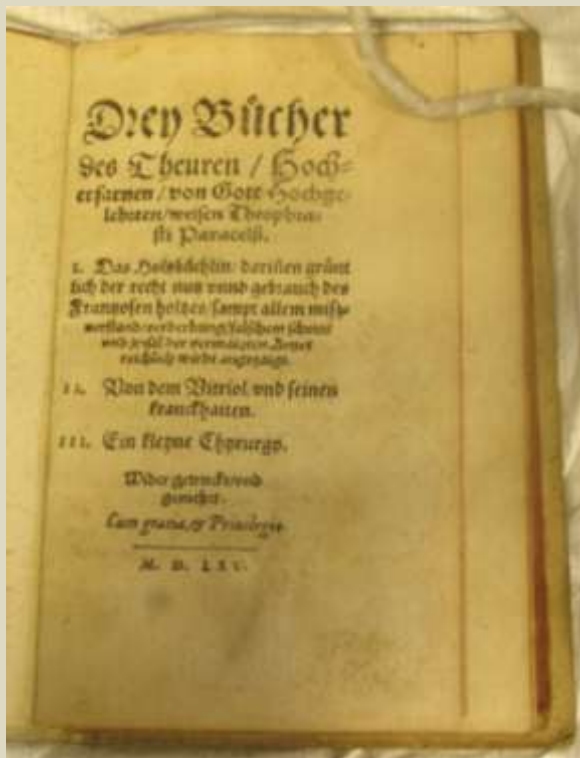 Drey Bücher
des Theuren / Hoch-
erfarnen / von Gott Hochge-
lehrten / weisen Theophra-
sti Paracelsi.
I. Das Holtzbüchlin / darinnen gründt
lich der recht nutz vnnd gebrauch des
Frantzosen holtzes / sampt allem miß-
verstand / verderbung / falschem schein
vnd der vermainten Artzet
reichlich wirdt angezaigt.
II. Von dem Vitriol vnd seinen
kranckhaiten.
III. Ein kleyne Chyrurgy.
Wider getruckt vnd
gemehrt.
Cum gratia, & Privilegio
M. D. LXV.